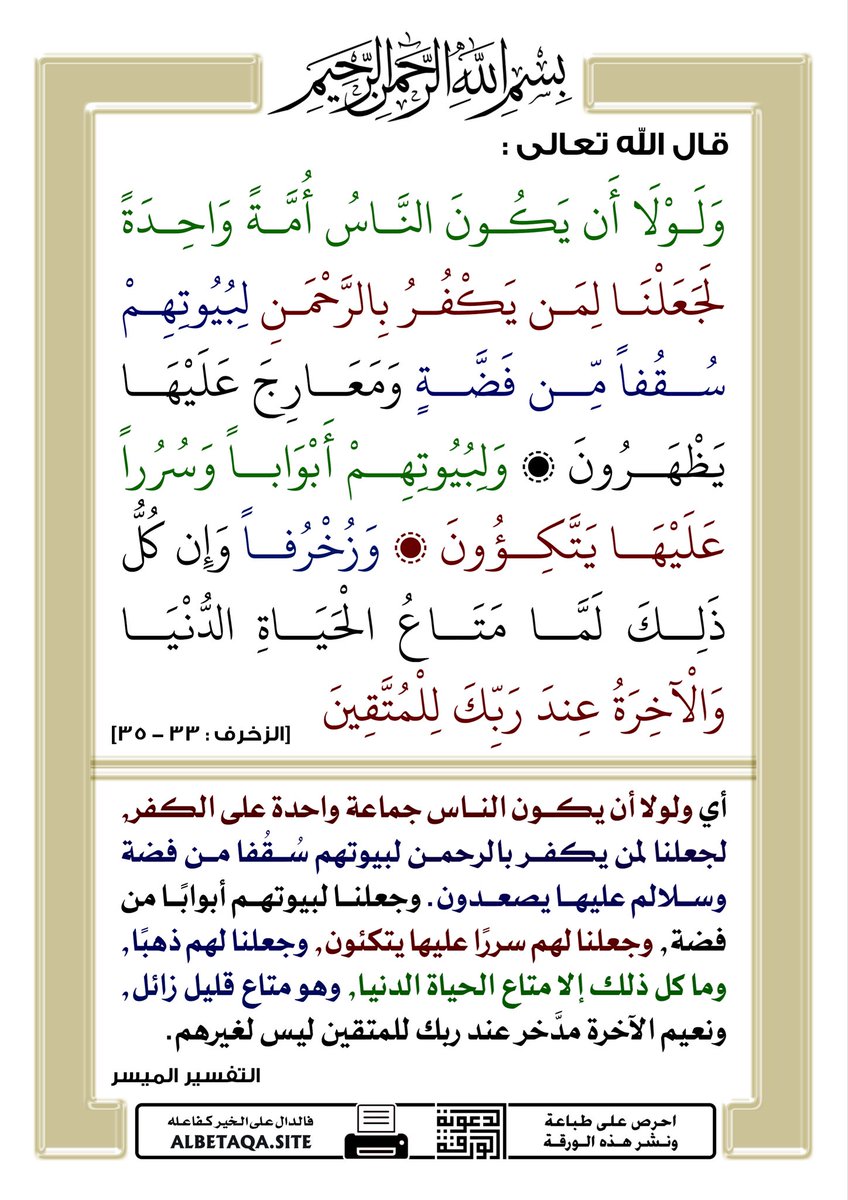 بِسْمِ اللَّهِ الرَّحْمَنِ الرَّحِيمِ
قال الله تعالى :
وَلَوْلَا أَن يَكُونَ النَّاسُ أُمَّةً وَاحِدَةً
لَجَعَلْنَا لِمَن يَكْفُرُ بِالرَّحْمَنِ لِبُيُوتِهِمْ
سُقُفاً مِّن فَضَّةٍ وَمَعَارِجَ عَلَيْهَا
يَظْهَرُونَ ۝ وَلِبُيُوتِهِمْ أَبْوَاباً وَسُرُراً
عَلَيْهَا يَتَّكِؤُونَ ۝ وَزُخْرُفاً وَإِن كُلُّ
ذَلِكَ لَمَّا مَتَاعُ الْحَيَاةِ الدُّنْيَا
وَالْآخِرَةُ عِندَ رَبِّكَ لِلْمُتَّقِينَ [الزخرف : ٣٣ - ٣٥]
أي ولولا أن يكون الناس جماعة واحدة على الكفر,
لجعلنا لمن يكفر بالرحمن لبيوتهم سُقُفا من فضة
وسلالم عليها يصعدون. وجعلنا لبيوتهم أبوابًا من
فضة, وجعلنا لهم سررًا عليها يتكئون, وجعلنا لهم ذهبًا,
وما كل ذلك إلا متاع الحياة الدنيا, وهو متاع قليل زائل,
ونعيم الآخرة مدَّخر عند ربك للمتقين ليس لغيرهم.
التفسير الميسر
احرص على طباعة
ونشر هذه الورقة
الورقة
الدعوية
فالدال على الخير كفاعله
ALBETAQA.SITE